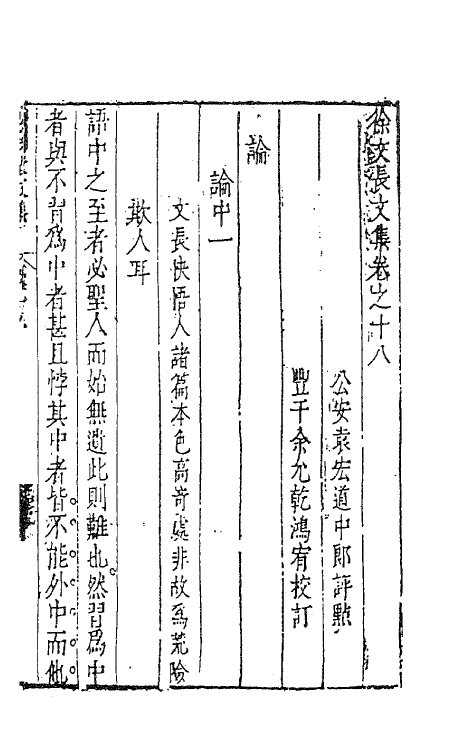 徐文長文集卷之十八
公安袁宏道中郎評點
豐干余允乾鴻宥校訂
論
論中一
文長快悟人諸篇本色高奇處非故爲荒險
欺人耳
語中之至者必聖人而始無遺此則難也然習爲中
者與不習爲中者甚且悖其中者皆不能外中而他